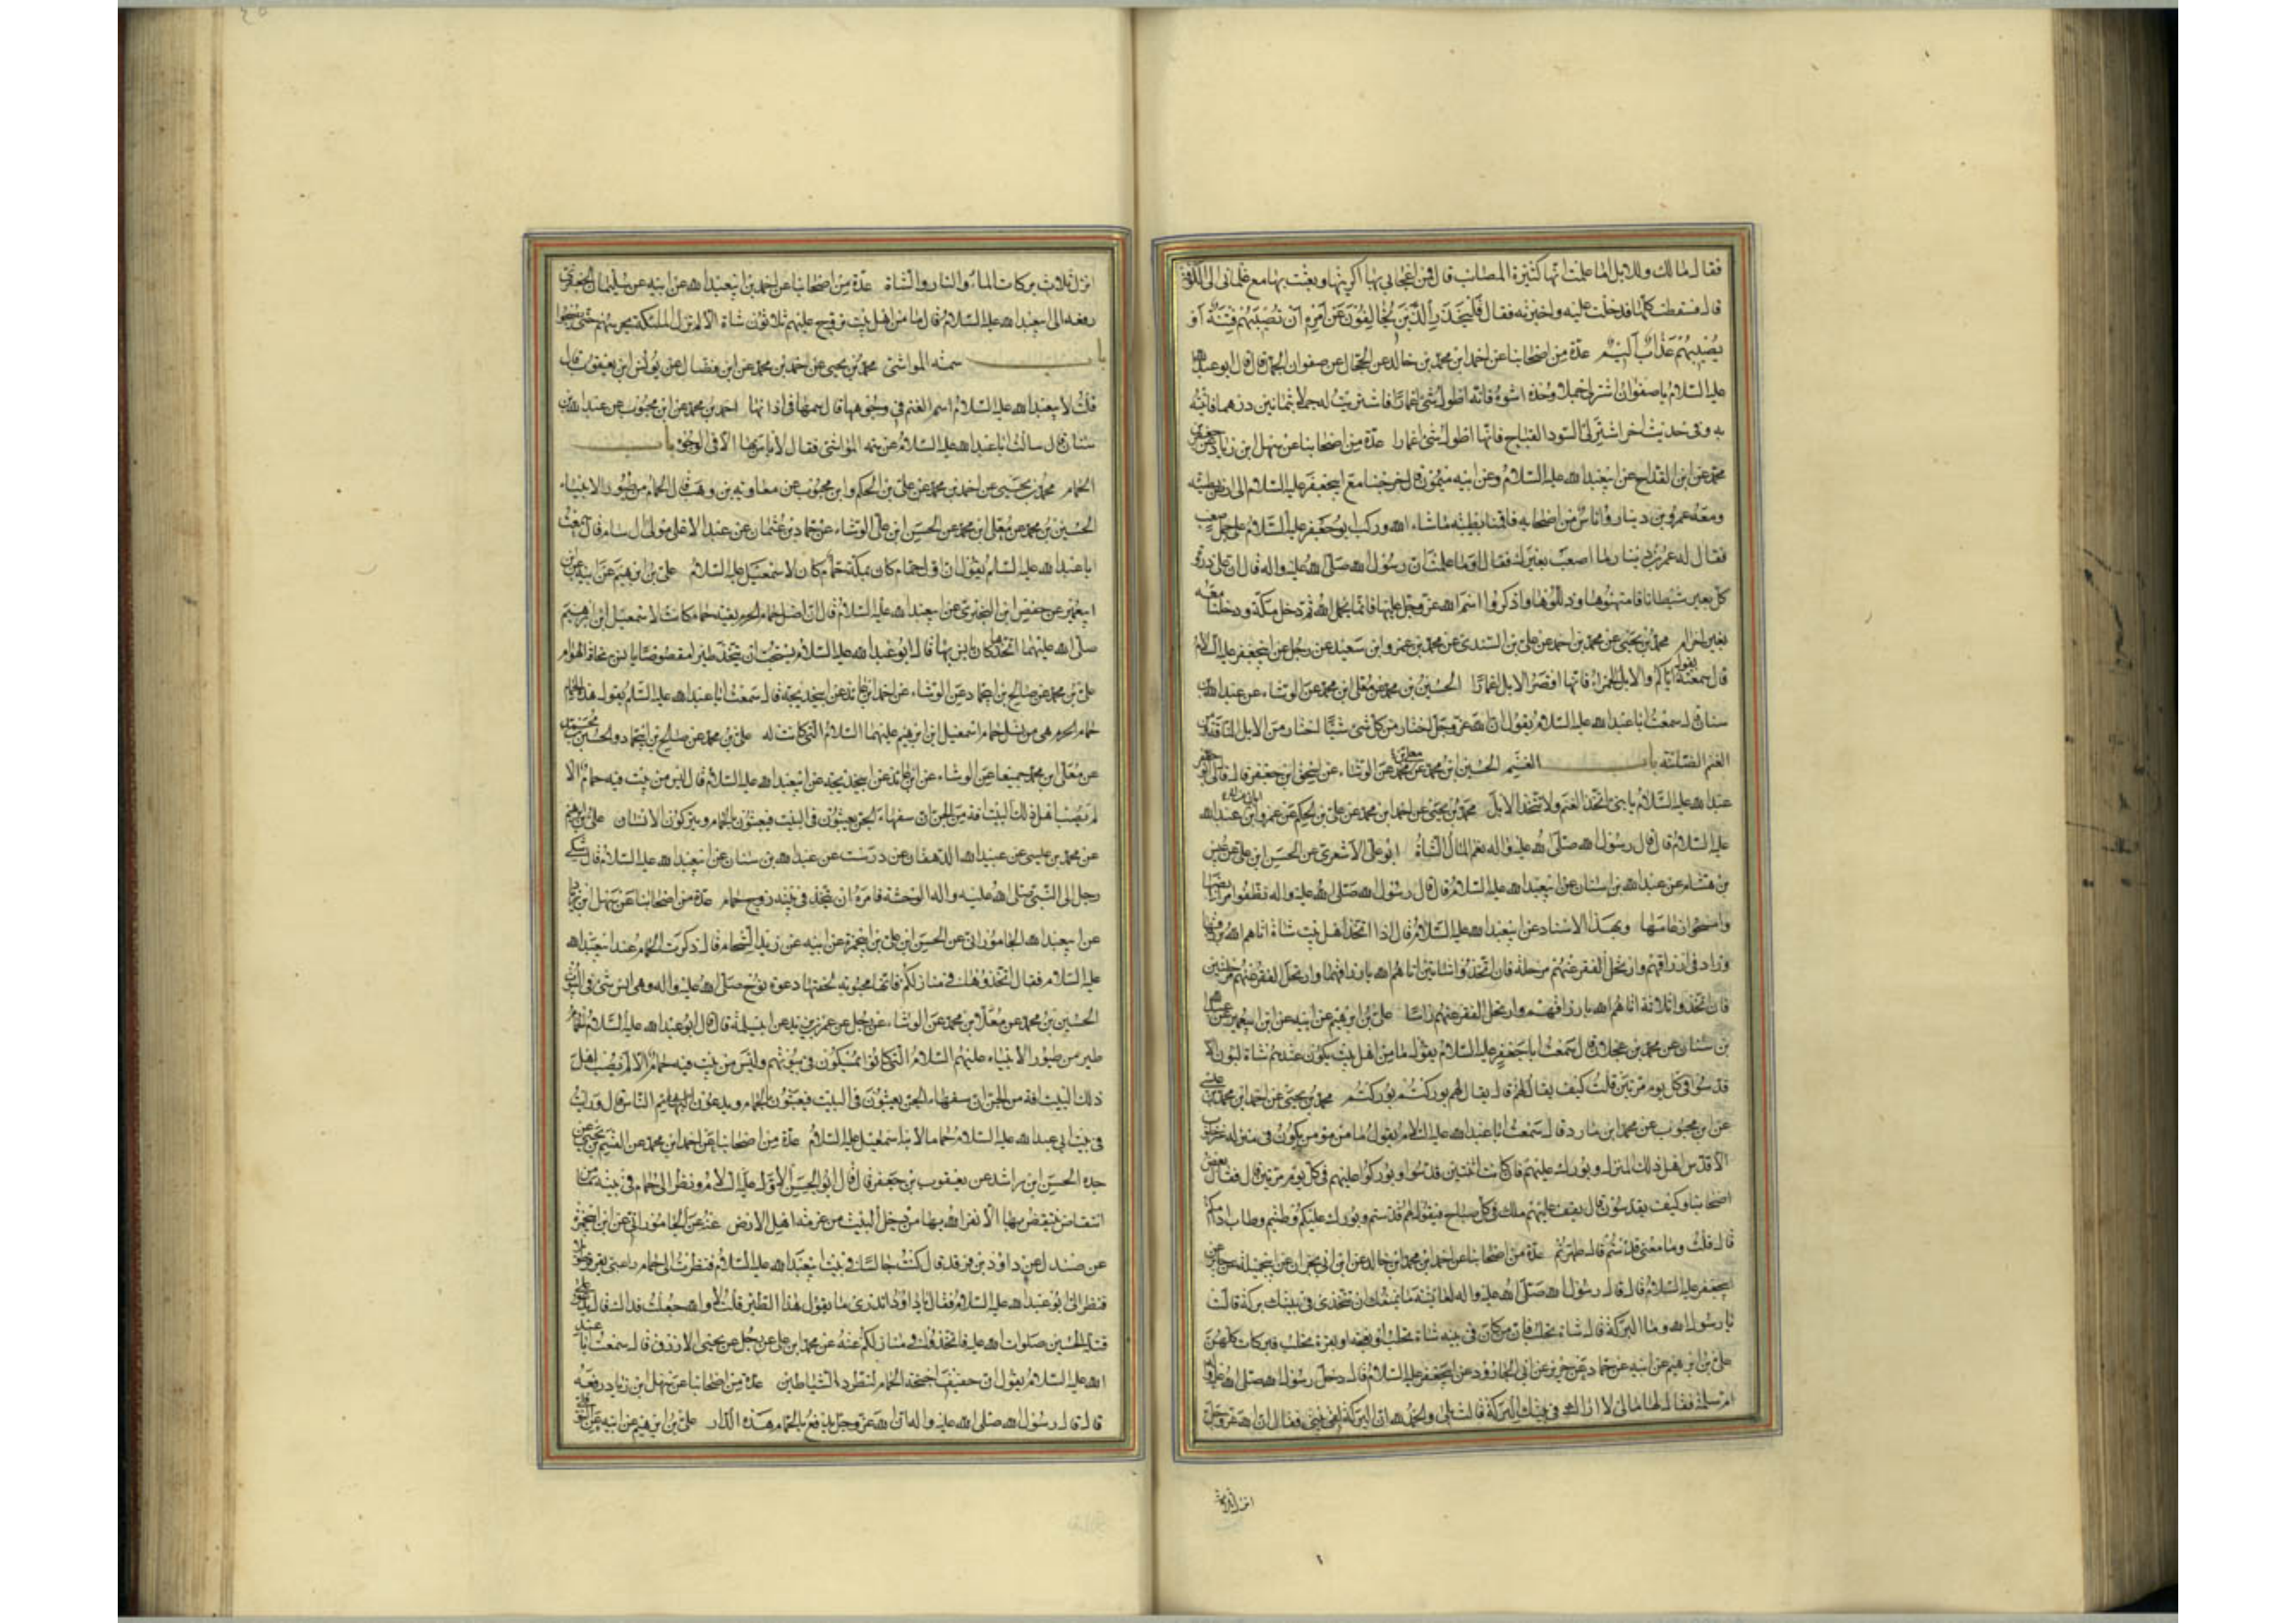 فقال مالك وللابل اما علمت انها كثيرة المصائب قال فمن اعجابي بها اكريتها وبعثت بها مع غلماني الى الكوفة
قال فسقطت كلها فدخلت عليه واخبرته فقال فَلْيَحْذَرِ الَّذينَ يُخالِفُونَ عَنْ اَمْرِهِ اَنْ تُصيبَهُمْ فِتْنَةٌ اَوْ
يُصيبَهُمْ عَذابٌ اَليمٌ عدّة من اصحابنا عن احمد ابن محمد بن خالد عن الحجال عن صفوان الجمال قال قال ابو عبدالله
عليه السلام يا صفوان اشتر لي جملا وخذه اشوه فانه اطول شئ اعمارا فاشتريت له جملا بثمانين درهما فاتيته
به وفي حديث اخر اشتر لي السود القباح فانها اطول شئ اعمارا عدّة من اصحابنا عن سهل ابن زياد عن جعفر بن
محمد عن ابن القداح عن ابيعبدالله عليه السلام وعن ابيه ميمون قال خرجنا مع ابيجعفر عليه السلام الى ارض طيبة
ومعه عمرو بن دينار واناس من اصحابه فاقمنا بطيبة ماشاء الله وركب ابو جعفر عليه السلام على جمل صعب
فقال له عمرو بن دينار ما اصعب بعيرك فقال اوما علمت ان رسول الله صلى الله عليه واله قال ان على ذروة
كل بعير شيطانا فامتهنوها وذللوها واذكروا اسم الله عز وجل عليها فانما يحمل الله ثم دخل مكة ودخلنا معه
بغير احرام محمد بن يحيى عن محمد بن احمد عن علي بن السندي عن محمد بن عمرو ابن سعيد عن رجل عن ابيجعفر عليه السلام
قال سمعته يقول اياكم والابل الحمر فانها اقصر الابل اعمارا الحسين بن محمد عن معلى ابن محمد عن الوشاء عن عبدالله بن
سنان قال سمعت ابا عبدالله عليه السلام يقول ان الله عز وجل اختار من كل شئ شيئا اختار من الابل الناقة ومن
الغنم الضائنة باب الغنم الحسين ابن محمد عن معلى بن محمد عن الوشاء عن اسحق ابن جعفر قال قال لي ابو
عبدالله عليه السلام يا بني اتخذ الغنم ولا تتخذ الابل محمد بن يحيى عن احمد ابن محمد عن علي بن الحكم عن عمرو ابن عبدالله
عليه السلام قال قال رسول الله صلى الله عليه واله نعم المال الشاة ابو علي الاشعري عن الحسن ابن علي عن عبيس
بن هشام عن عبدالله بن سنان عن ابيعبدالله عليه السلام قال قال رسول الله صلى الله عليه واله نظفوا مرابضها
وامسحوا رغامها وبهذا الاسناد عن ابيعبدالله عليه السلام قال اذا اتخذ اهل بيت شاة اتاهم الله برزقها
وزاد في ارزاقهم وارتحل الفقر عنهم مرحلة فان اتخذوا شاتين اتاهم الله بارزاقهما وارتحل الفقر عنهم مرحلتين
فان اتخذوا ثلاثة اتاهم الله بارزاقهم وارتحل الفقر عنهم راسا علي بن ابرهيم عن ابيه عن ابن ابيعمير عن عبدالله
بن سنان عن محمد بن عجلان قال سمعت ابا جعفر عليه السلام يقول ما من اهل بيت يكون عندهم شاة لبون الا
قدسوا في كل يوم مرتين قلت كيف يقال لهم قال يقال لهم بوركتم بوركتم محمد بن يحيى عن احمد ابن محمد بن عيسى
عن ابن محبوب عن محمد ابن مارد قال سمعت ابا عبدالله عليه السلام يقول ما من مؤمن يكون في منزله عنز حلوب
الا قدس اهل ذلك المنزل وبورك عليهم فان كانت اثنتين قدسوا وبوركوا عليهم في كل يوم مرتين قال فقال بعض
اصحابنا وكيف يقدسون قال يقف عليهم ملك في كل صباح فيقول لهم قدستم وبورك عليكم وطبتم وطاب ادامكم
قال قلت وما معنى قدستم قال طهرتم عدّة من اصحابنا عن احمد ابن محمد ابن خالد عن ابن ابي نجران عن ابيجميلة عن جابر عن
ابيجعفر عليه السلام قال قال رسول الله صلى الله عليه واله لعمته ما يمنعك ان تتخذي في بيتك بركة قالت
يا رسول الله وما البركة قال شاة تحلب فان من كان في بيته شاة تحلب او نعجة او بقرة تحلب فبركات كلهن
علي بن ابرهيم عن ابيه عن حماد عن حريز عن ابي الجارود عن ابيجعفر عليه السلام قال دخل رسول الله صلى الله عليه واله
ام سلمة فقال لها مالي لا ارى في بيتك البركة قالت بلى والحمد لله ان البركة لفي بيتي فقال ان الله عز وجل
انزل ثلاث
انزل ثلاث بركات الماء والنار والشاة عدّة من اصحابنا عن احمد بن ابيعبدالله عن ابيه عن سليمان الجعفري
رفعه الى ابيعبدالله عليه السلام قال ما من اهل بيت تروح عليهم ثلاثون شاة الا لم تزل الملئكة تحرسهم حتى يصبحوا
باب سمة المواشي محمد بن يحيى عن احمد بن محمد عن ابن فضال عن يونس ابن يعقوب قال
قلت لابيعبدالله عليه السلام اسم الغنم في وجوهها قال سمها في اذانها احمد بن محمد عن ابن محبوب عن عبدالله بن
سنان قال سالت ابا عبدالله عليه السلام عن سمة المواشي فقال لا باس بها الا في الوجوه باب
الحمام محمد بن يحيى عن احمد بن محمد عن علي بن الحكم وابن محبوب عن معاوية بن وهب قال الحمام من طيور الانبياء
الحسين بن محمد عن معلى ابن محمد عن الحسن ابن علي الوشاء عن حماد بن عثمان عن عبد الاعلى مولى ال سام قال سمعت
ابا عبدالله عليه السلام يقول ان اول حمام كان بمكة حمام كان لاسمعيل عليه السلام علي بن ابرهيم عن ابيه عن ابن
ابيعمير عن حفص ابن البختري عن ابيعبدالله عليه السلام قال ان اصل حمام الحرم بقية حمام كانت لاسمعيل ابن ابرهيم
صلى الله عليهما اتخذها كان يانس بها قال ابو عبدالله عليه السلام يستحب ان يتخذ طيرا مقصوصا يانس به مخافة الهوام
علي بن محمد عن صالح بن ابيحماد عن الوشاء عن احمد ابن عائذ عن ابيخديجة قال سمعت ابا عبدالله عليه السلام يقول هذه الحمام
حمام الحرم هي من نسل حمام اسمعيل ابن ابرهيم عليهما السلام التي كانت له علي بن محمد عن صالح بن ابيحماد والحسين بن محمد
عن معلى بن محمد جميعا عن الوشاء عن ابن عائذ عن ابيخديجة عن ابيعبدالله عليه السلام قال ليس من بيت فيه حمام الا
لم يصب اهل ذلك البيت افة من الجن ان سفهاء الجن يعبثون في البيت فيعبثون بالحمام ويتركون الانسان علي بن ابرهيم
عن محمد بن عيسى عن عبيدالله الدهقان عن درست عن عبدالله بن سنان عن ابيعبدالله عليه السلام قال شكى
رجل الى النبي صلى الله عليه واله الوحشة فامره ان يتخذ في بيته زوج حمام عدّة من اصحابنا عن سهل ابن زياد
عن ابيعبدالله الجاموراني عن الحسن ابن علي بن ابيحمزة عن ابيه عن زيد الشحام قال ذكرت الحمام عند ابيعبدالله
عليه السلام فقال اتخذوها في منازلكم فانها محبوبة لحقتها دعوة نوح صلى الله عليه واله وهي انس شئ في البيوت
الحسين بن محمد عن معلى ابن محمد عن الوشاء عن رجل عن عمر بن يزيد عن ابيسلمة قال قال ابو عبدالله عليه السلام الحمام
طير من طيور الانبياء عليهم السلام التي كانوا يمسكون في بيوتهم وليس من بيت فيه حمام الا لم يصب اهل
ذلك البيت افة من الجن ان سفهاء الجن يعبثون في البيت فيعبثون بالحمام ويدعون الناس قال ورايت
في بيت ابي عبدالله عليه السلام حماما لابنه اسمعيل عليه السلام عدّة من اصحابنا عن احمد ابن محمد عن القسم بن يحيى عن
جده الحسن ابن راشد عن يعقوب بن جعفر قال قال ابو الحسن الاول عليه السلام ونظر الى حمام في بيته ما من
انتفاض ينتفض بها الا نفر الله بها من دخل البيت من عزمة اهل الارض عنه عن الجاموراني عن ابن ابيحمزة
عن صندل عن داود بن فرقد قال كنت جالسا في بيت ابيعبدالله عليه السلام فنظرت الى حمام راعبي يقرقر طويلا
فنظر الي ابو عبدالله عليه السلام فقال يا داود اتدري ما يقول هذا الطير قلت لا والله جعلت فداك قال يدعو على
قتلة الحسين صلوات الله عليه فاتخذوه في منازلكم عنه عن محمد ابن علي عن رجل عن يحيى الازرق قال سمعت ابا عبد
الله عليه السلام يقول ان حفيف اجنحة الحمام لتطرد الشياطين عدّة من اصحابنا عن سهل ابن زياد رفعه
قال قال رسول الله صلى الله عليه واله ان الله عز وجل يدفع بالحمام هدة الدار علي بن ابرهيم عن ابيه عن